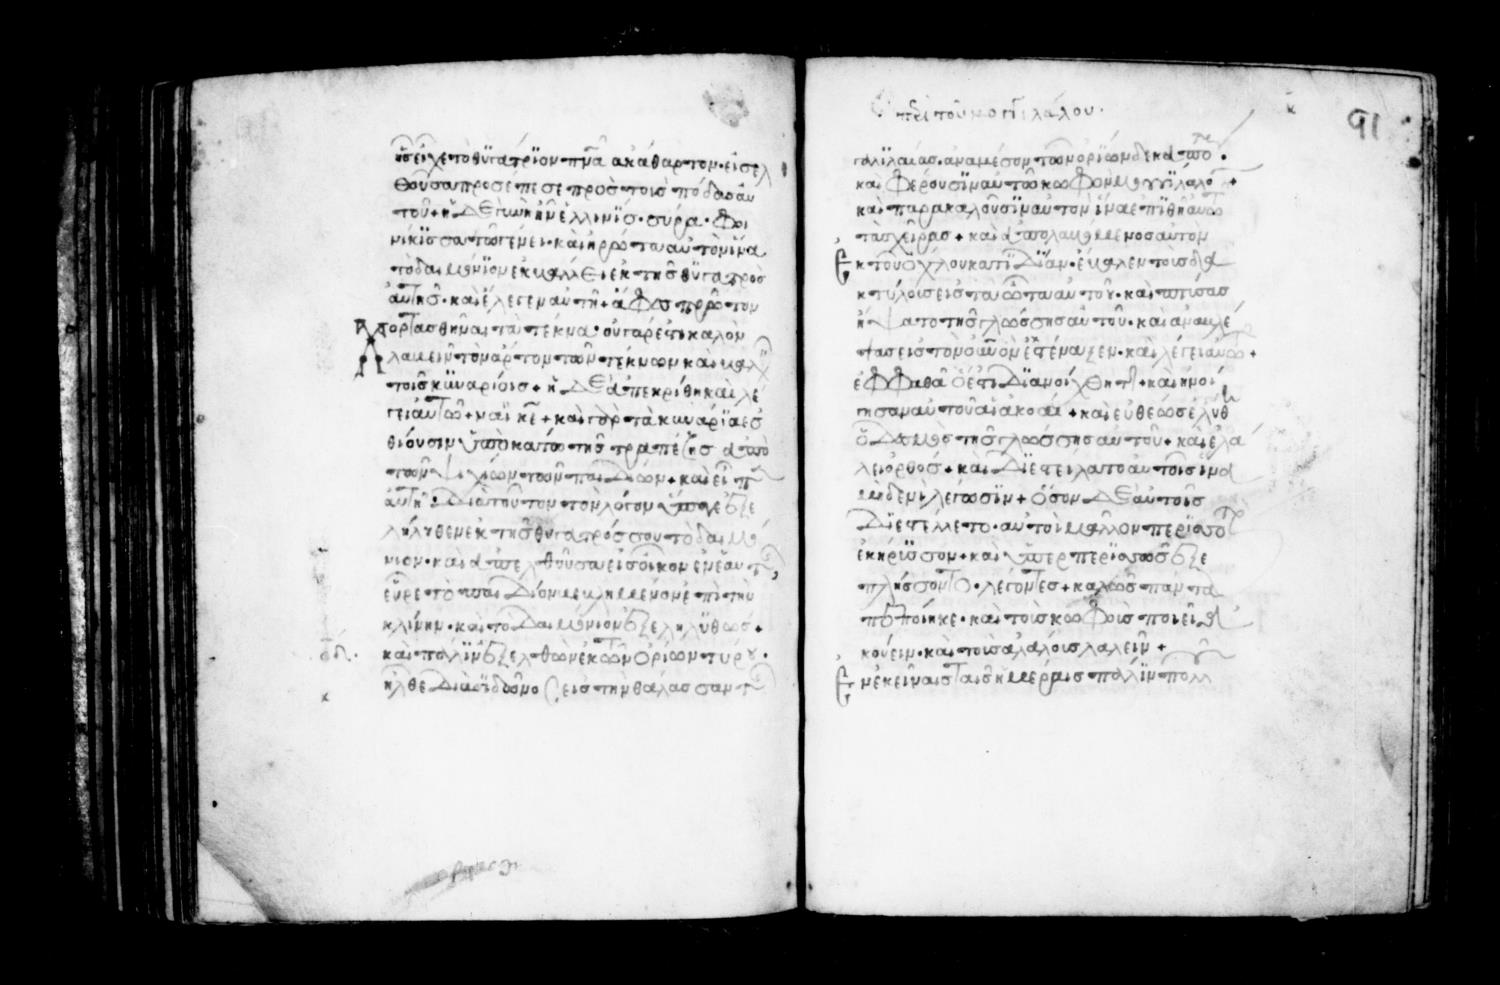 ἧς εἶχε τὸ θυγάτριον πνα ἀκάθαρτον· εἰσελ
θοῦσα προσέπεσε πρὸς τοὺς πόδας αυ
τοῦ + ἡ δὲ γυνὴ ἦν ἑλληνὶς· σύρα· φοι
νίκισσα τῶ γένει· καὶ ἠρώτα αὐτὸν ἵνα
τὸ δαιμόνιον ἐκβάλλει ἐκ τῆς θυγατρὸς
αὐτῆς· καὶ ἔλεγεν αὐτῆ + ἄφες πρῶτον
χορτασθῆναι τὰ τέκνα· οὐ γάρ ἐστι καλὸν
λαβεῖν τὸν ἄρτον τῶν τέκνων καὶ βαλεῖ
τοῖς κυναρίοις + ἡ δὲ ἀπεκρίθη καὶ λέ
γει αὐτῶ + ναὶ κε + καὶ γὰρ τὰ κυνάρια ἐσ
θίουσιν ὑποκάτω τῆς τραπέζης ἀπὸ
τῶν ψιχίων τῶν παιδίων + καὶ εἶπ
αὐτῆ· διὰ τοῦτον τὸν λόγον ὕπαγε ἐξε
λήλυθεν ἐκ τῆς θυγατρός σου τὸ δαιμό
νιον· καὶ ἀπελθοῦσα εἰς οἶκον ἑαυτ
εὗρε τὸ παιδίον βεβλημένον ἐπὶ τὴν
κλίνην· καὶ τὸ δαιμόνιον ἐξεληλυθὼς +
καὶ πάλιν ἐξελθὼν ἐκ τῶν ὁρίων τύρου·
ἦλθε διὰ σιδῶνος εἰς τὴν θάλασσαν τ
περὶ τοῦ μογιλάλου·
γαλιλαίας· ἀναμέσον τῶν ὁρίων δεκαπο
καὶ φέρουσιν αὐτῶ κωφὸν μογγιλάλον +
καὶ παρακαλοῦσιν αὐτὸν ἵνα ἐπιθῆ αυτω
τὰς χεῖρας + καὶ ἀπολαβόμενος αὐτὸν
ἐκ τοῦ ὄχλου κατιδίαν· ἔβαλεν τοὺς δα
κτύλοις εἰς τὰ ὦτα αὐτοῦ· καὶ πτύσας
ἥψατο τῆς γλώσσης αὐτοῦ· καὶ ἀναβλέ
ψας εἰς τὸν ουνὸν ἐστέναξεν· καὶ λέγει αυτω +
ἐφφαθὰ ὅ ἐστι διανοίχθητι + καὶ ἠνοί
γησαν αὐτοῦ αἱ ἀκοαί + καὶ εὐθέως ἐλύθ
ὁ δεσμὸς τῆς γλώσσης αὐτοῦ + καὶ ἐλά
λει ὀρθῶς + καὶ διεστείλατο αὐτοῖς ἵνα
μηδενὶ λέγωσιν + ὅσον δὲ αὐτοῖς
διεστέλλετο· αὐτοὶ μᾶλλον περισσο
ἐκήρυσσον + καὶ ὑπερπερισσῶς ἐξε
πλήσσοντο· λέγοντες + καλῶς πάντα
πεποίηκε· καὶ τοὺς κωφοὺς ποιεῖ ἀ
κούειν· καὶ τοὺς ἀλάλους λαλεῖν +
Ἐν ἐκείναις ταῖς ἡμέραις πάλιν πολλ